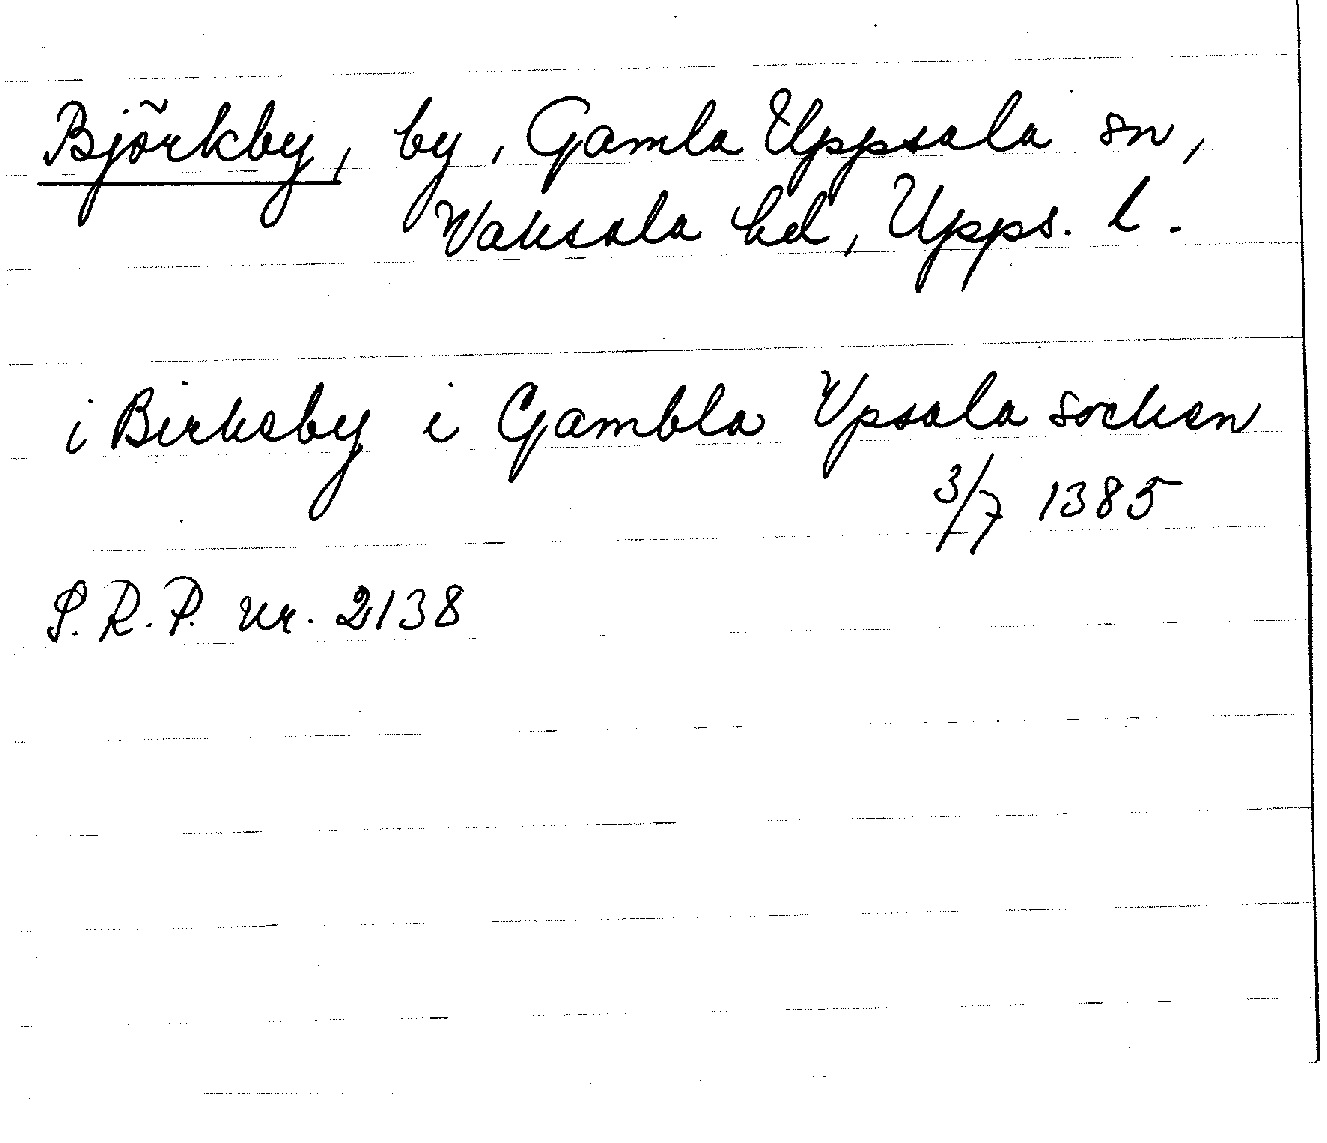 Björkby, by, Gamla Uppsala sn,
Vaksala hd, Upps. l.
i Birkeby i Gambla Upsala socken
3/7 1385
S.R.P. nr. 2138